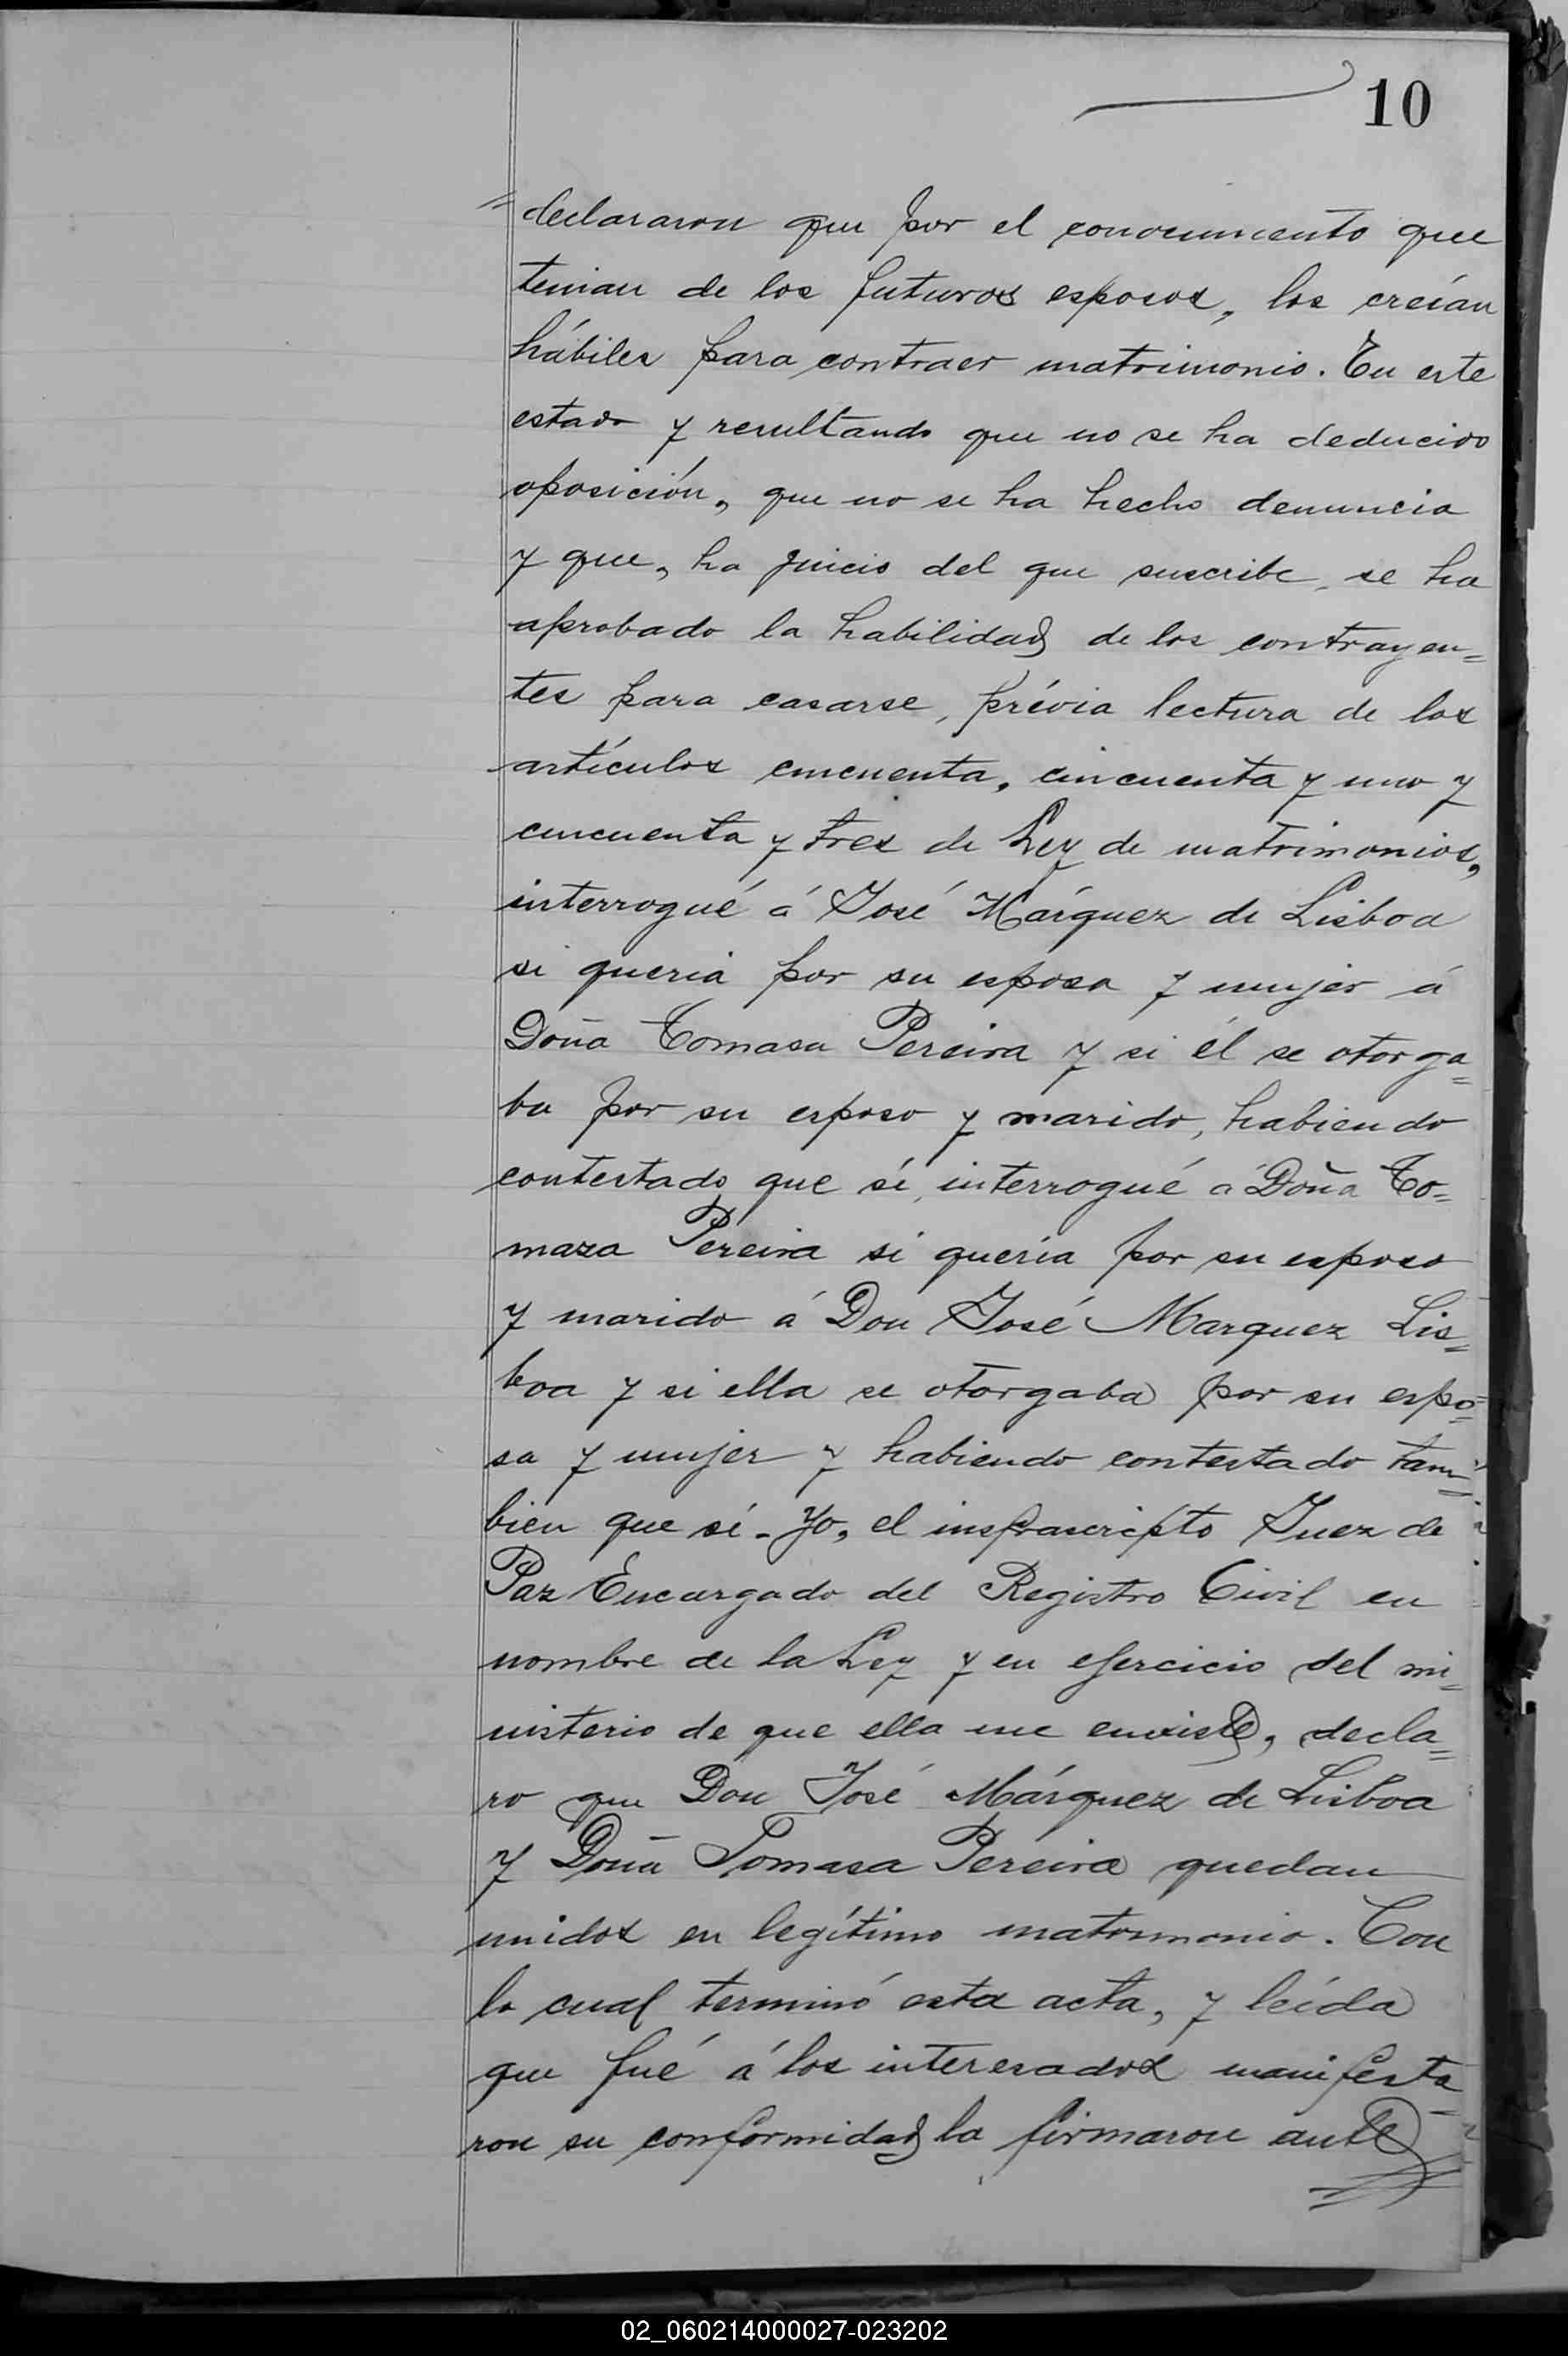 10
declararon que por el conocimiento que
tenian de los futuros esposos, los creían
hábiles para contraer matrimonio. En este
estado y resultando que no se ha deducido
oposición, que no se ha hecho denuncia
y que, ha juicio del que suscribe, se ha
aprobado la habilidad de los contrayen=
tes para casarse, prévia lectura de los
artículos cincuenta, cincuenta y uno y
cincuenta y tres de Ley de matrimonios,
interrogué á José Márquez de Lisboa
si queria por su esposa y mujer á
Doña Tomasa Pereira y si él se otorga=
ba por su esposo y marido, habiendo
contestado que sí, interrogué á Doña To=
maza Pereira si quería por su esposo
y marido á Don José Marquez Lis=
boa y si ella se otorgaba por su espo=
sa y mujer y habiendo contestado tam=
bien que sí - Yo, el insfrascripto Juez de
Paz Encargado del Registro Civil en
nombre de la Ley y en ejercicio del mi=
nisterio de que ella me enviste, decla=
ro que Don José Márquez de Lisboa
y Doña Tomasa Pereira quedan
unidos en legítimo matrimonio. Con
lo cual terminó esta acta, y leída
que fué á los interesados manifesta=
ron su conformidad la firmaron ante
02_060214000027-023202